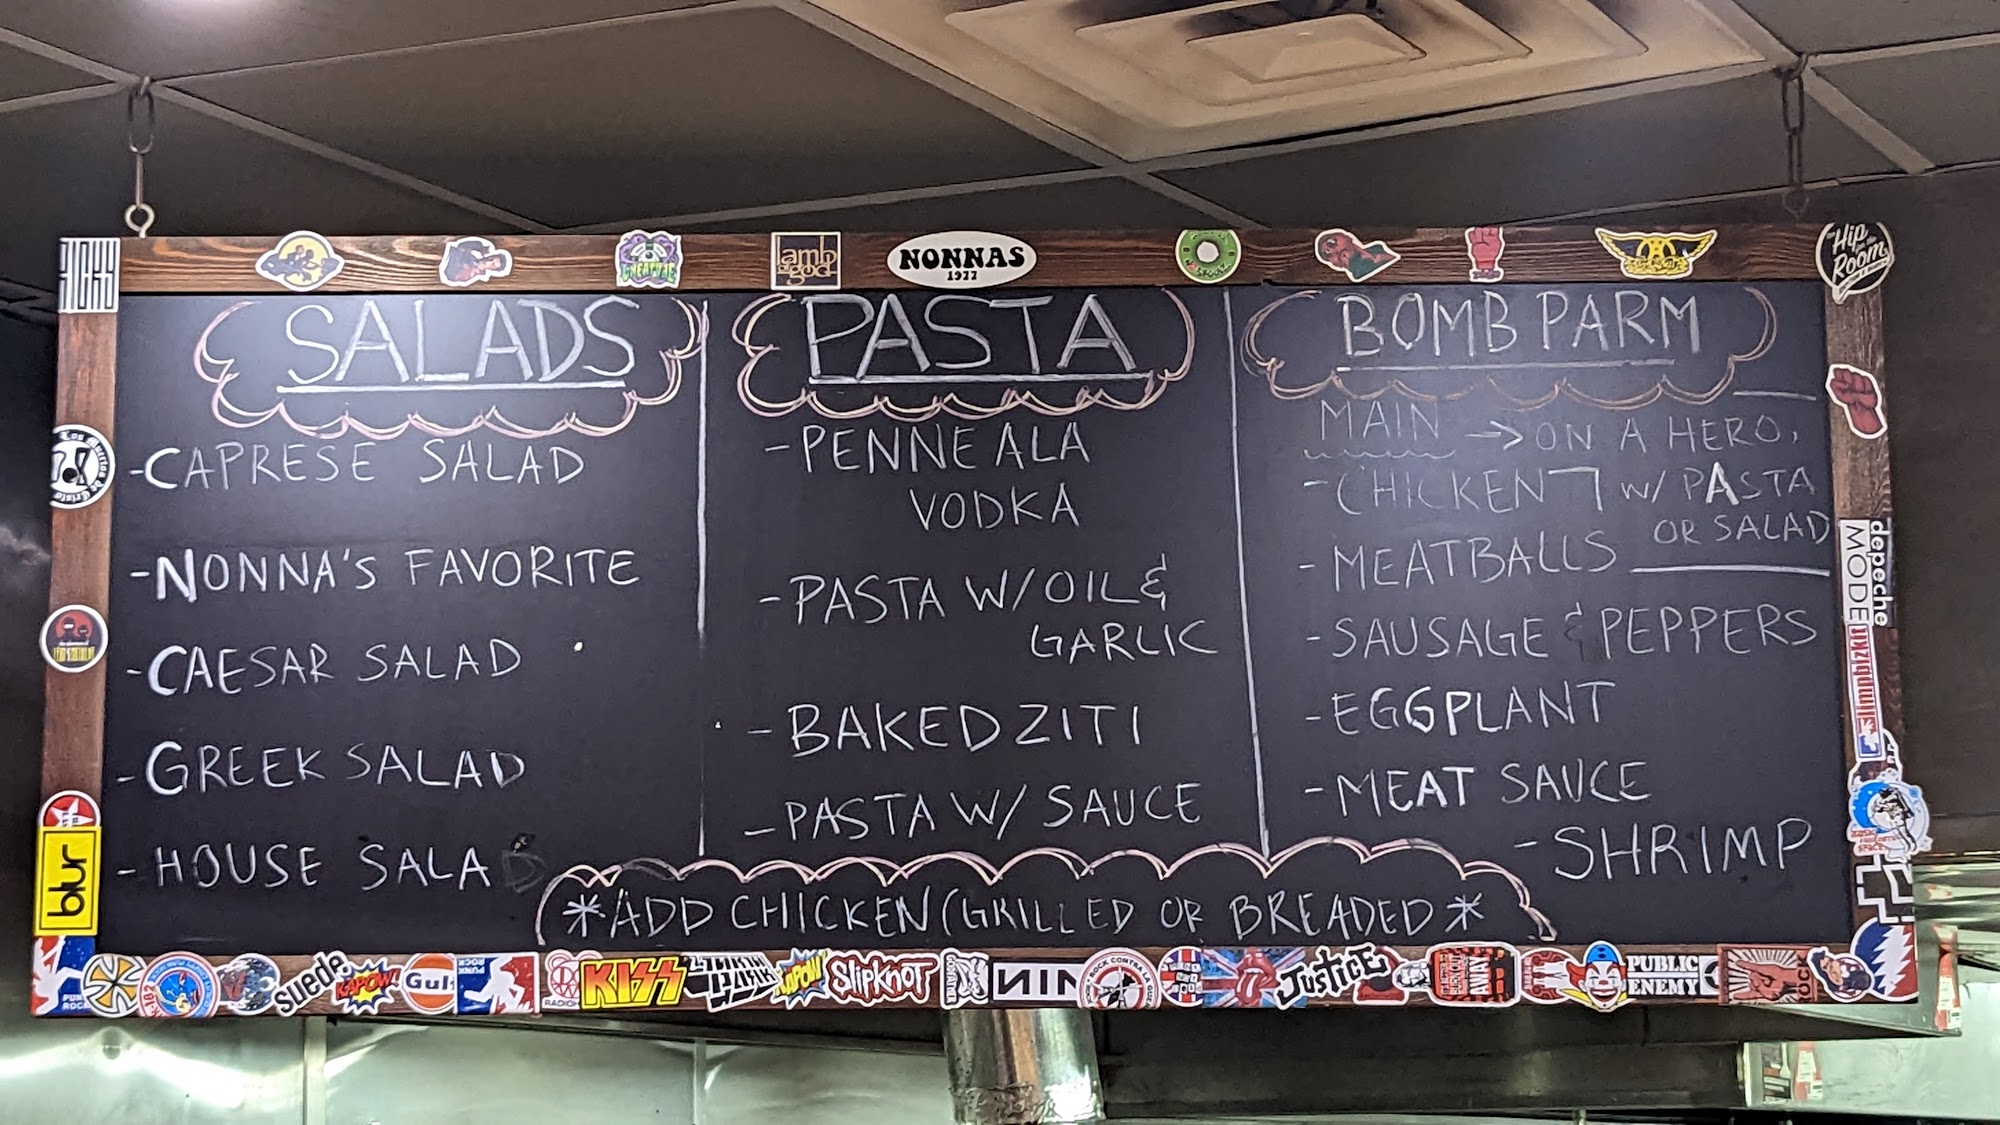 lamb of god
NONNAS
1977
CREATURE
the Hip Room
SALADS
-CAPRESE SALAD
-NONNA'S FAVORITE
-CAESAR SALAD
-GREEK SALAD
-HOUSE SALAD
PASTA
-PENNE ALA
VODKA
-PASTA W/OIL &
GARLIC
-BAKED ZITI
-PASTA W/ SAUCE
BOMB PARM
MAIN → ON A HERO,
-CHICKEN W/ PASTA
OR SALAD
-MEATBALLS
-SAUSAGE & PEPPERS
-EGGPLANT
-MEAT SAUCE
-SHRIMP
*ADD CHICKEN (GRILLED OR BREADED*
depeche
MODE
limpbizkit
blur
PUNK
ROCK
suede
KAPOW!
Gulf
PUNK
ROCK
RADIOH
KISS
KAPOW!
SLIPKNOT
NIN
ROCK CONTRA
JUSTICE
PUBLIC
ENEMY
ROCK